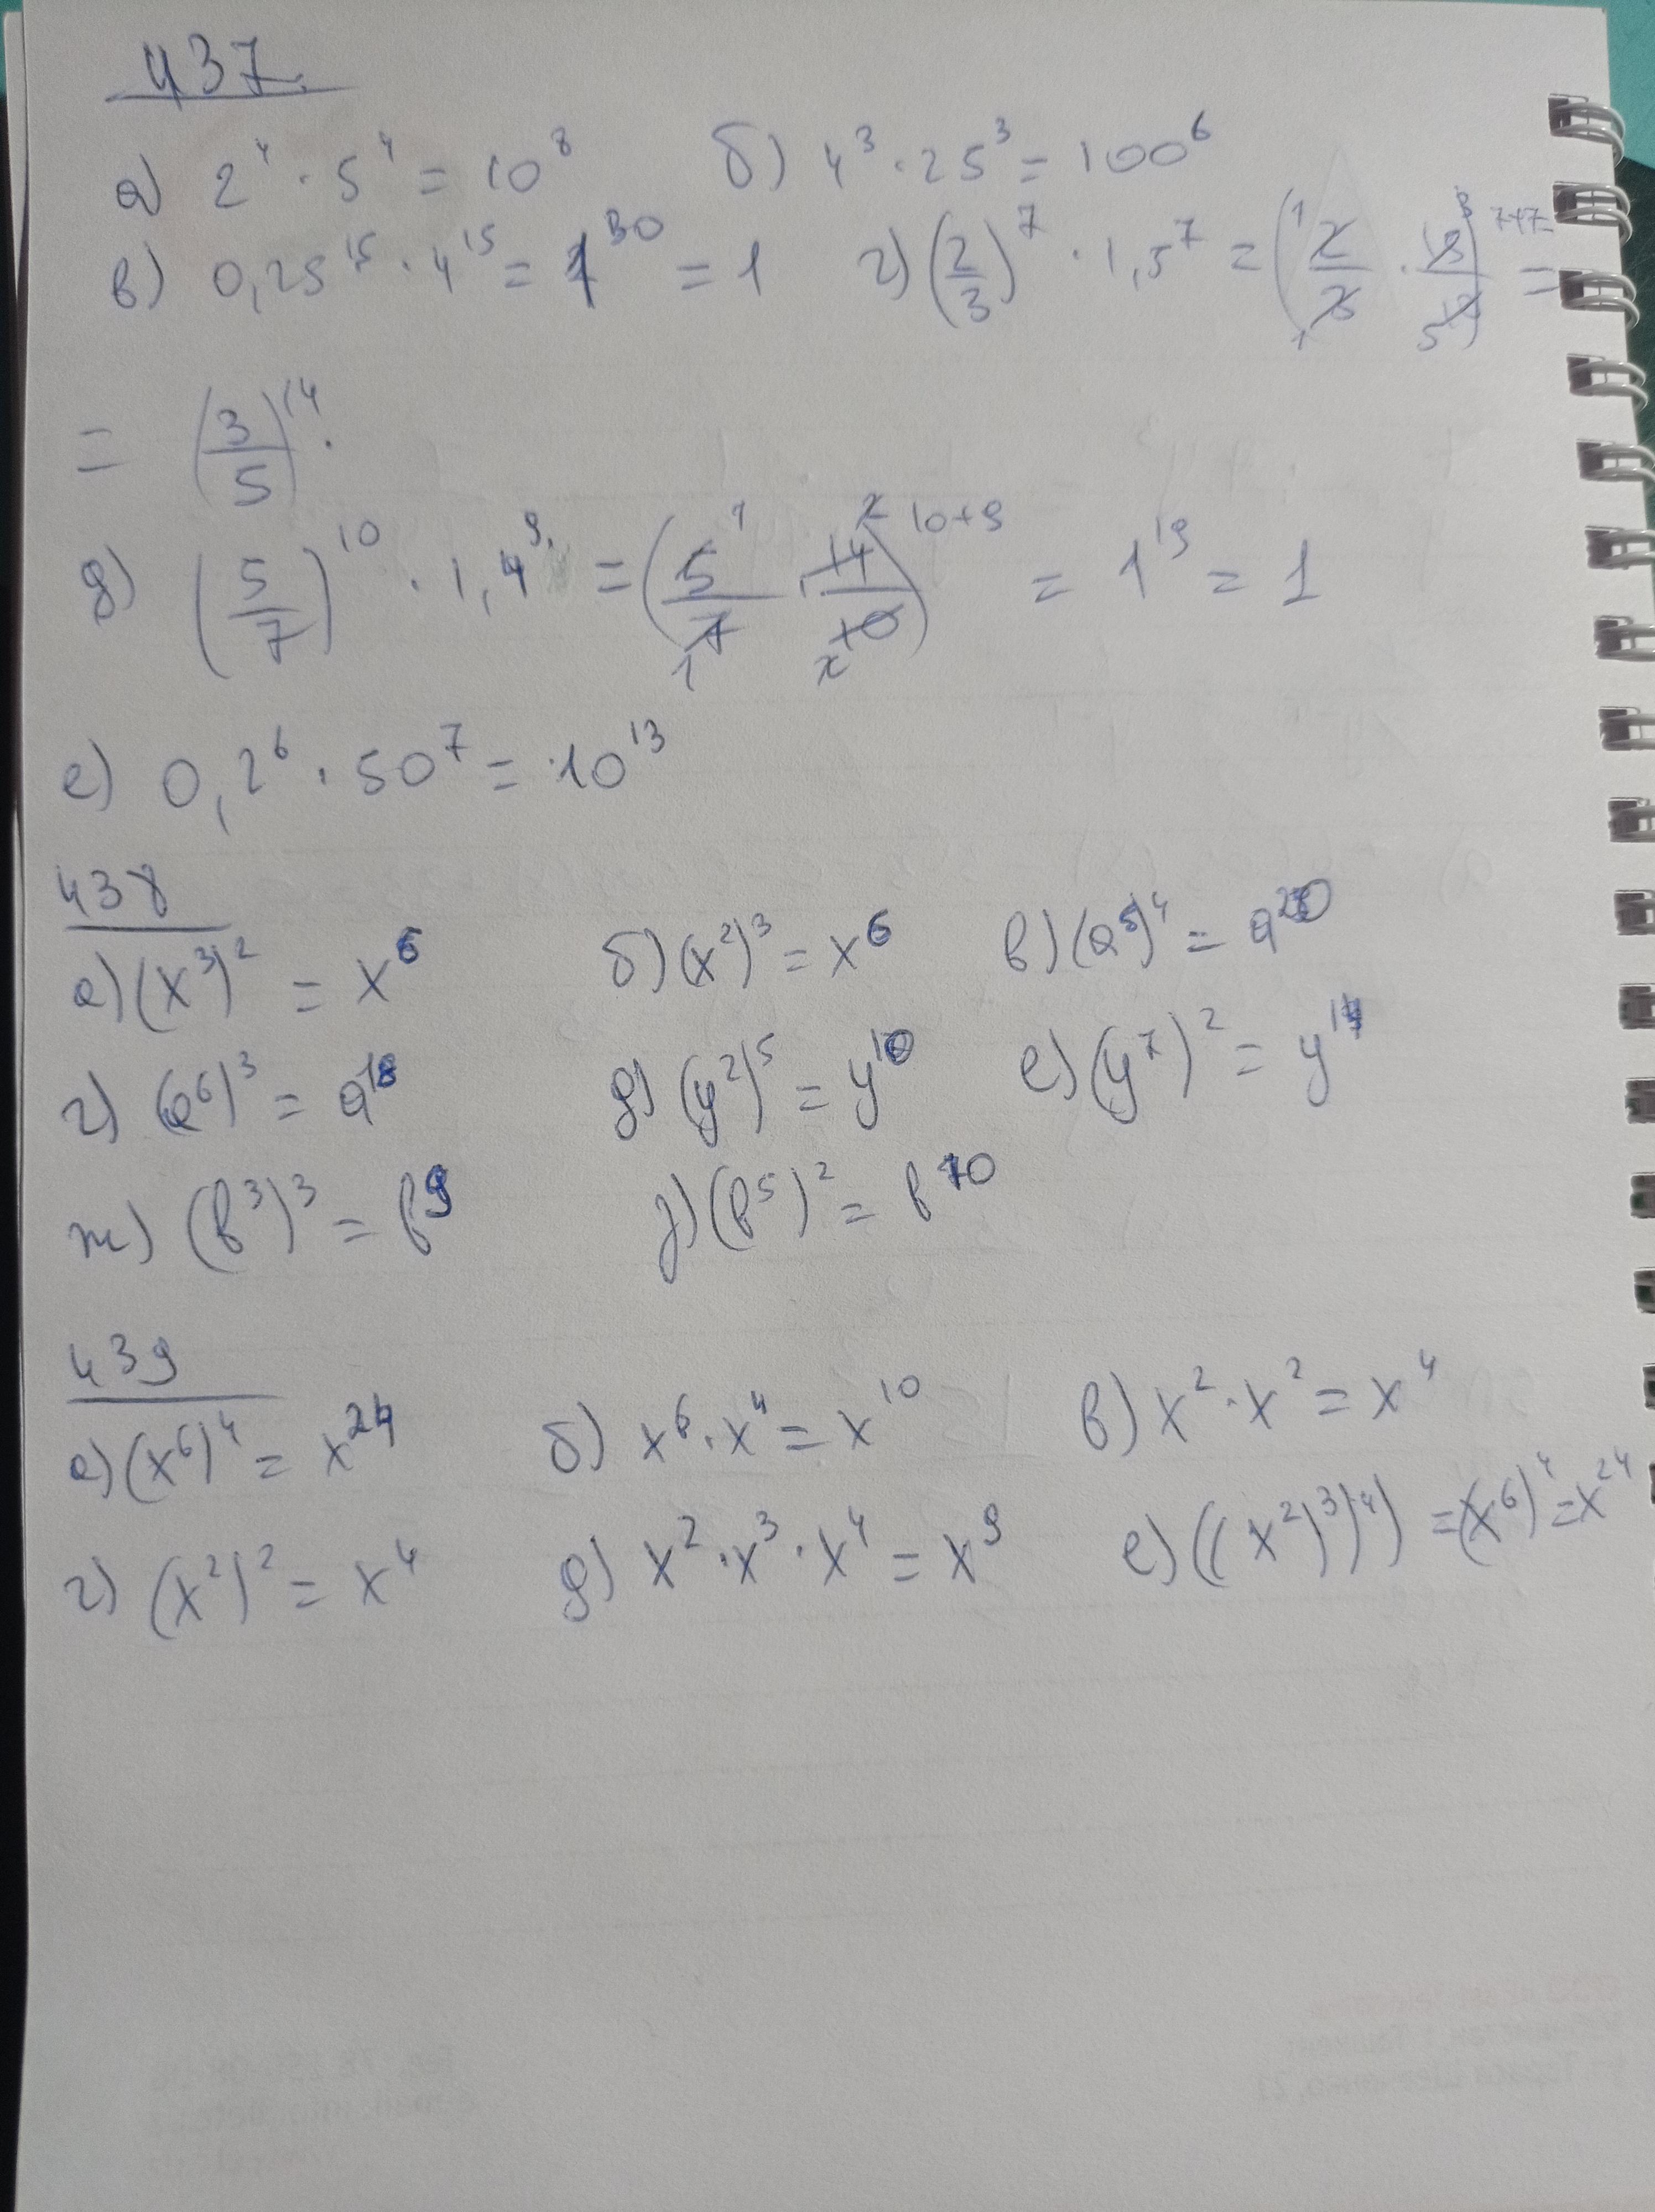 437.
а) 2⁴ · 5⁴ = 10⁸ б) 4³ · 25³ = 100⁶
в) 0,25¹⁵ · 4¹⁵ = 1³⁰ = 1 г) (2/3)⁷ · 1,5⁷ = (2/3 · 15/10)⁷⁺⁷ =
= (3/5)¹⁴.
д) (5/7)¹⁰ · 1,4⁹ = (5/7 · 14/10)¹⁰⁺⁹ = 1¹⁹ = 1
е) 0,2⁶ · 50⁷ = 10¹³
438
а) (x³)² = x⁶ б) (x²)³ = x⁶ в) (a⁵)⁴ = a²⁰
г) (a⁶)³ = a¹⁸ д) (y²)⁵ = y¹⁰ е) (y⁷)² = y¹⁴
ж) (b³)³ = b⁹ з) (b⁵)² = b¹⁰
439
а) (x⁶)⁴ = x²⁴ б) x⁶ · x⁴ = x¹⁰ в) x² · x² = x⁴
г) (x²)² = x⁴ д) x² · x³ · x⁴ = x⁹ е) ((x²)³)⁴) = (x⁶)⁴ = x²⁴